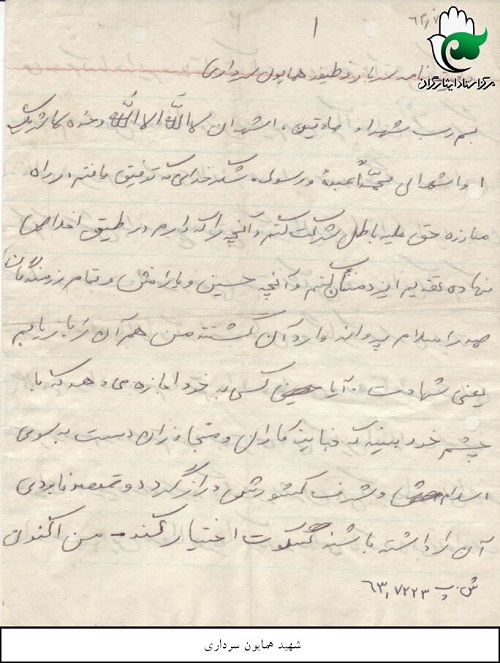 ۶۳٫
۱
مرکز اسناد ایثارگران
نامه سرباز وظیفه همایون سرداری
بسم رب شهداء و صادقین، اشهدان لا الله الا الله وحده لا شریک
له و اشهدان محمداً عبده و رسوله، شکر خدای که توفیق یافتم در راه
مبارزه حق علیه باطل شرکت کنم و آنچه را که دارم در طبق اخلاص
نهاده تقدیم ایزد منان کنم و آنچه حسین و یارانش و تمام رزمندگان
صدر اسلام پروانه وار در آن گشتند من هم آن را بازیابم
یعنی شهادت. آیا کسی به خود اجازه می دهد که با
چشم خود ببیند که جنایتکاران و متجاوزان دست به سوی
اسلام و شرف کشورش دراز گردد و قصد نابودی
آن را داشته باشند سکوت اختیار کند - من اکنون
ش.پ ۶۳٫۷۲۲۳
شهید همایون سرداری